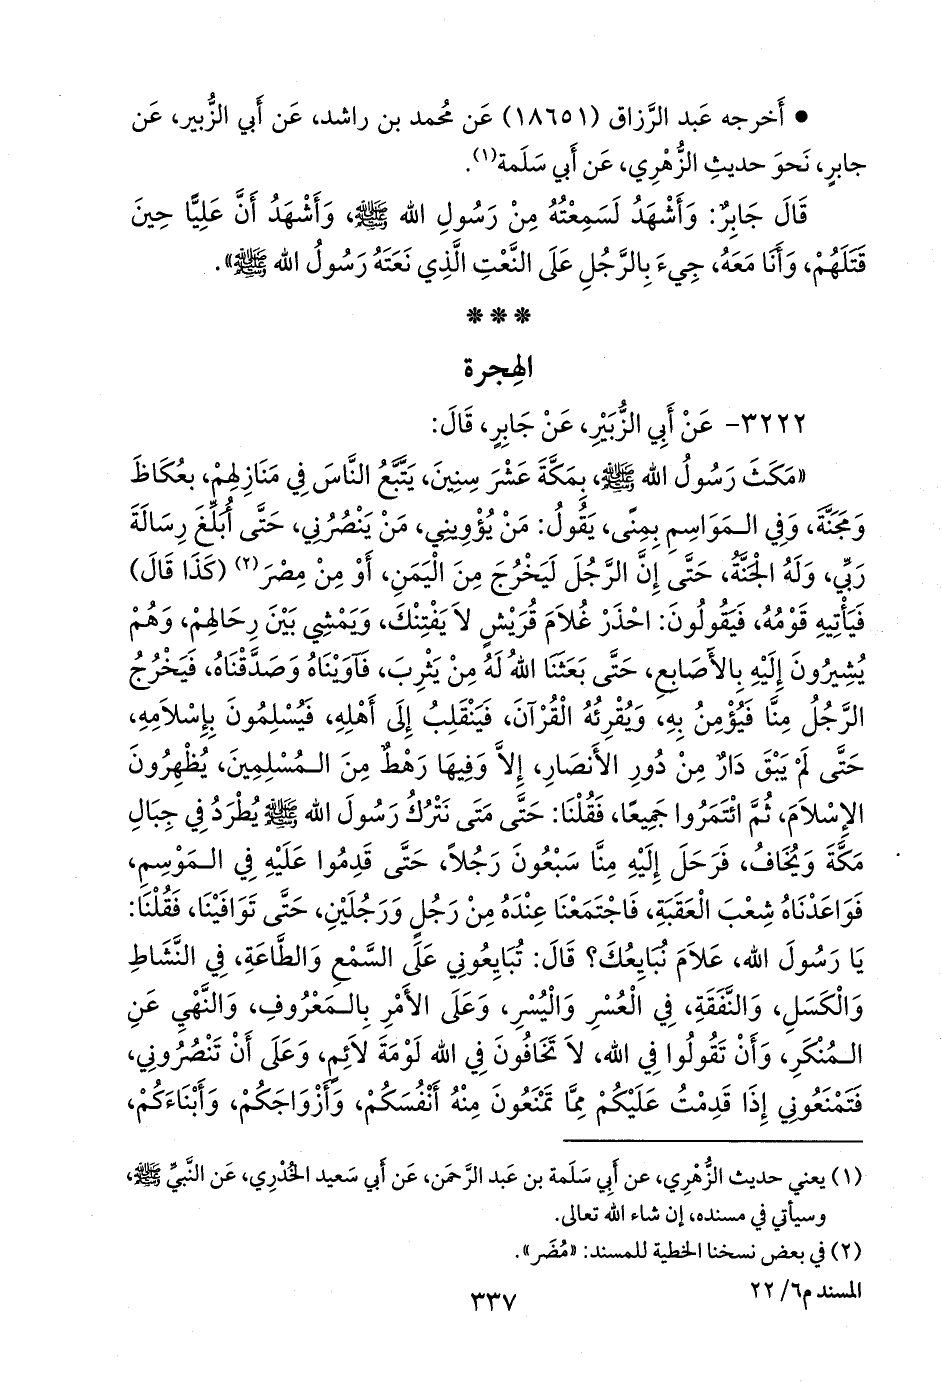 ● أَخرجه عَبد الرَّزاق (١٨٦٥١) عَن مُحمد بن راشد، عَن أَبي الزُّبير، عَن
جابرٍ، نَحوَ حديثِ الزُّهْري، عَن أَبي سَلَمة(١).
قَالَ جَابِرٌ: وَأَشْهَدُ لَسَمِعْتُهُ مِنْ رَسُولِ الله ﷺ، وَأَشْهَدُ أَنَّ عَلِيًّا حِينَ
قَتَلَهُمْ، وَأَنَا مَعَهُ، جِيءَ بِالرَّجُلِ عَلَى النَّعْتِ الَّذِي نَعَتَهُ رَسُولُ الله ﷺ».
* * *
الهِجرة
٣٢٢٢- عَنْ أَبِي الزُّبَيْرِ، عَنْ جَابِرٍ، قَالَ:
«مَكَثَ رَسُولُ الله ﷺ، بِمَكَّةَ عَشْرَ سِنِينَ، يَتَّبَّعُ النَّاسَ فِي مَنَازِلِهِمْ، بِعُكَاظَ
وَمَجَنَّةَ، وَفِي الـمَوَاسِمِ بِمِنًى، يَقُولُ: مَنْ يُؤْوِينِي، مَنْ يَنْصُرُنِي، حَتَّى أُبَلِّغَ رِسَالَةَ
رَبِّي، وَلَهُ الْجَنَّةُ، حَتَّى إِنَّ الرَّجُلَ لَيَخْرُجَ مِنَ الْيَمَنِ، أَوْ مِنْ مِصْرَ(٢) (كَذَا قَالَ)
فَيَأْتِيهِ قَوْمُهُ، فَيَقُولُونَ: احْذَرْ غُلَامَ قُرَيْشٍ لاَ يَفْتِنْكَ، وَيَمْشِي بَيْنَ رِحَالِهِمْ، وَهُمْ
يُشِيرُونَ إِلَيْهِ بِالأَصَابِعِ، حَتَّى بَعَثَنَا اللهُ لَهُ مِنْ يَثْرِبَ، فَآوَيْنَاهُ وَصَدَّقْنَاهُ، فَيَخْرُجُ
الرَّجُلُ مِنَّا فَيُؤْمِنُ بِهِ، وَيُقْرِئُهُ الْقُرْآنَ، فَيَنْقَلِبُ إِلَى أَهْلِهِ، فَيُسْلِمُونَ بِإِسْلاَمِهِ،
حَتَّى لَمْ يَبْقَ دَارٌ مِنْ دُورِ الأَنْصَارِ، إِلاَّ وَفِيهَا رَهْطٌ مِنَ الـمُسْلِمِينَ، يُظْهِرُونَ
الإِسْلاَمَ، ثُمَّ ائْتَمَرُوا جَمِيعًا، فَقُلْنَا: حَتَّى مَتَى نَتْرُكُ رَسُولَ الله ﷺ يُطْرَدُ فِي جِبَالِ
مَكَّةَ وَيُخَافُ، فَرَحَلَ إِلَيْهِ مِنَّا سَبْعُونَ رَجُلاً، حَتَّى قَدِمُوا عَلَيْهِ فِي الـمَوْسِمِ،
فَوَاعَدْنَاهُ شِعْبَ الْعَقَبَةِ، فَاجْتَمَعْنَا عِنْدَهُ مِنْ رَجُلٍ وَرَجُلَيْنِ، حَتَّى تَوَافَيْنَا، فَقُلْنَا:
يَا رَسُولَ الله، عَلاَمَ نُبَايِعُكَ؟ قَالَ: تُبَايِعُونِي عَلَى السَّمْعِ وَالطَّاعَةِ، فِي النَّشَاطِ
وَالْكَسَلِ، وَالنَّفَقَةِ، فِي الْعُسْرِ وَالْيُسْرِ، وَعَلَى الأَمْرِ بِالـمَعْرُوفِ، وَالنَّهْيِ عَنِ
الـمُنْكَرِ، وَأَنْ تَقُولُوا فِي الله، لاَ تَخَافُونَ فِي الله لَوْمَةَ لاَئِمٍ، وَعَلَى أَنْ تَنْصُرُونِي،
فَتَمْنَعُونِي إِذَا قَدِمْتُ عَلَيْكُمْ مِمَّا تَمْنَعُونَ مِنْهُ أَنْفُسَكُمْ، وَأَزْوَاجَكُمْ، وَأَبْنَاءَكُمْ،
(١) يعني حديث الزُّهْري، عن أَبي سَلَمة بن عَبد الرَّحمَن، عَن أَبي سَعيد الخُدْري، عَن النَّبيِّ ﷺ،
وسيأتي في مسنده، إن شاء الله تعالى.
(٢) في بعض نسخنا الخطية للمسند: «مُضَر».
المسند م٦/ ٢٢
٣٣٧